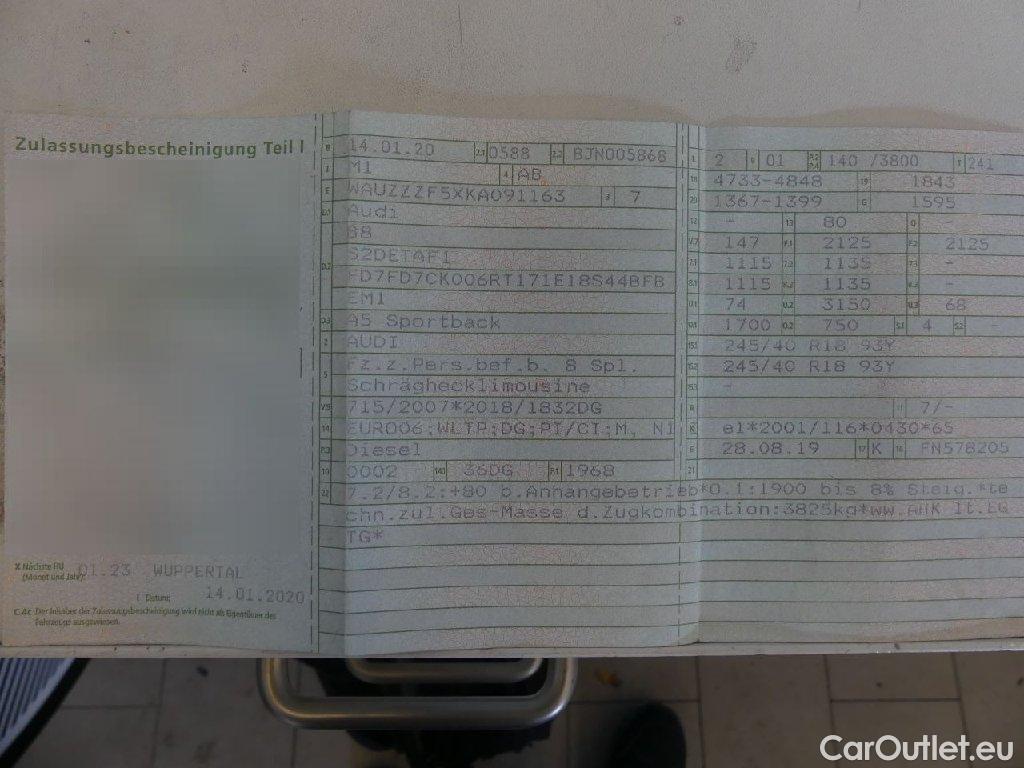 Zulassungsbescheinigung Teil I
B 14.01.20 2.1 0588 2.2 BJN005868
J M1 4 AB
E WAUZZZF5XKA091163 3 7
D.1 Audi
B8
D.2 S2DETAF1
FD7FD7CK006RT171E18S44BFB
EM1
D.3 A5 Sportback
2 AUDI
5 Fz.z.Pers.bef.b. 8 Spl.
Schräghecklimousine
V.9 715/2007*2018/1832DG
14 EURO6;WLTP;DG;PI/CI;M, N1
P.3 Diesel
10 0002 14.1 36DG P.1 1968
22 7.2/8.2:+80 b.Anhängebetrieb*O.1:1900 bis 8% Steig.*te
chn.zul.Ges-Masse d.Zugkombination:3825kg*ww.AHK lt.EG
TG*
L 2 9 01 P.2 P.4 140 /3800 T 241
18 4733-4848 19 1843
20 1367-1399 G 1595
12 - 13 80 Q -
V.7 147 F.1 2125 F.2 2125
7.1 1115 7.2 1135 7.3 -
8.1 1115 8.2 1135 8.3 -
U.1 74 U.2 3150 U.3 68
O.1 1700 O.2 750 S.1 4 S.2 -
15.1 245/40 R18 93Y
15.2 245/40 R18 93Y
15.3 -
R 11 7/-
K e1*2001/116*0430*65
6 28.08.19 17 K 16 FN578205
21
X Nächste HU
(Monat und Jahr) 01.23 WUPPERTAL
I Datum: 14.01.2020
C.4c Der Inhaber der Zulassungsbescheinigung wird nicht als Eigentümer des
Fahrzeugs ausgewiesen.
CarOutlet.eu